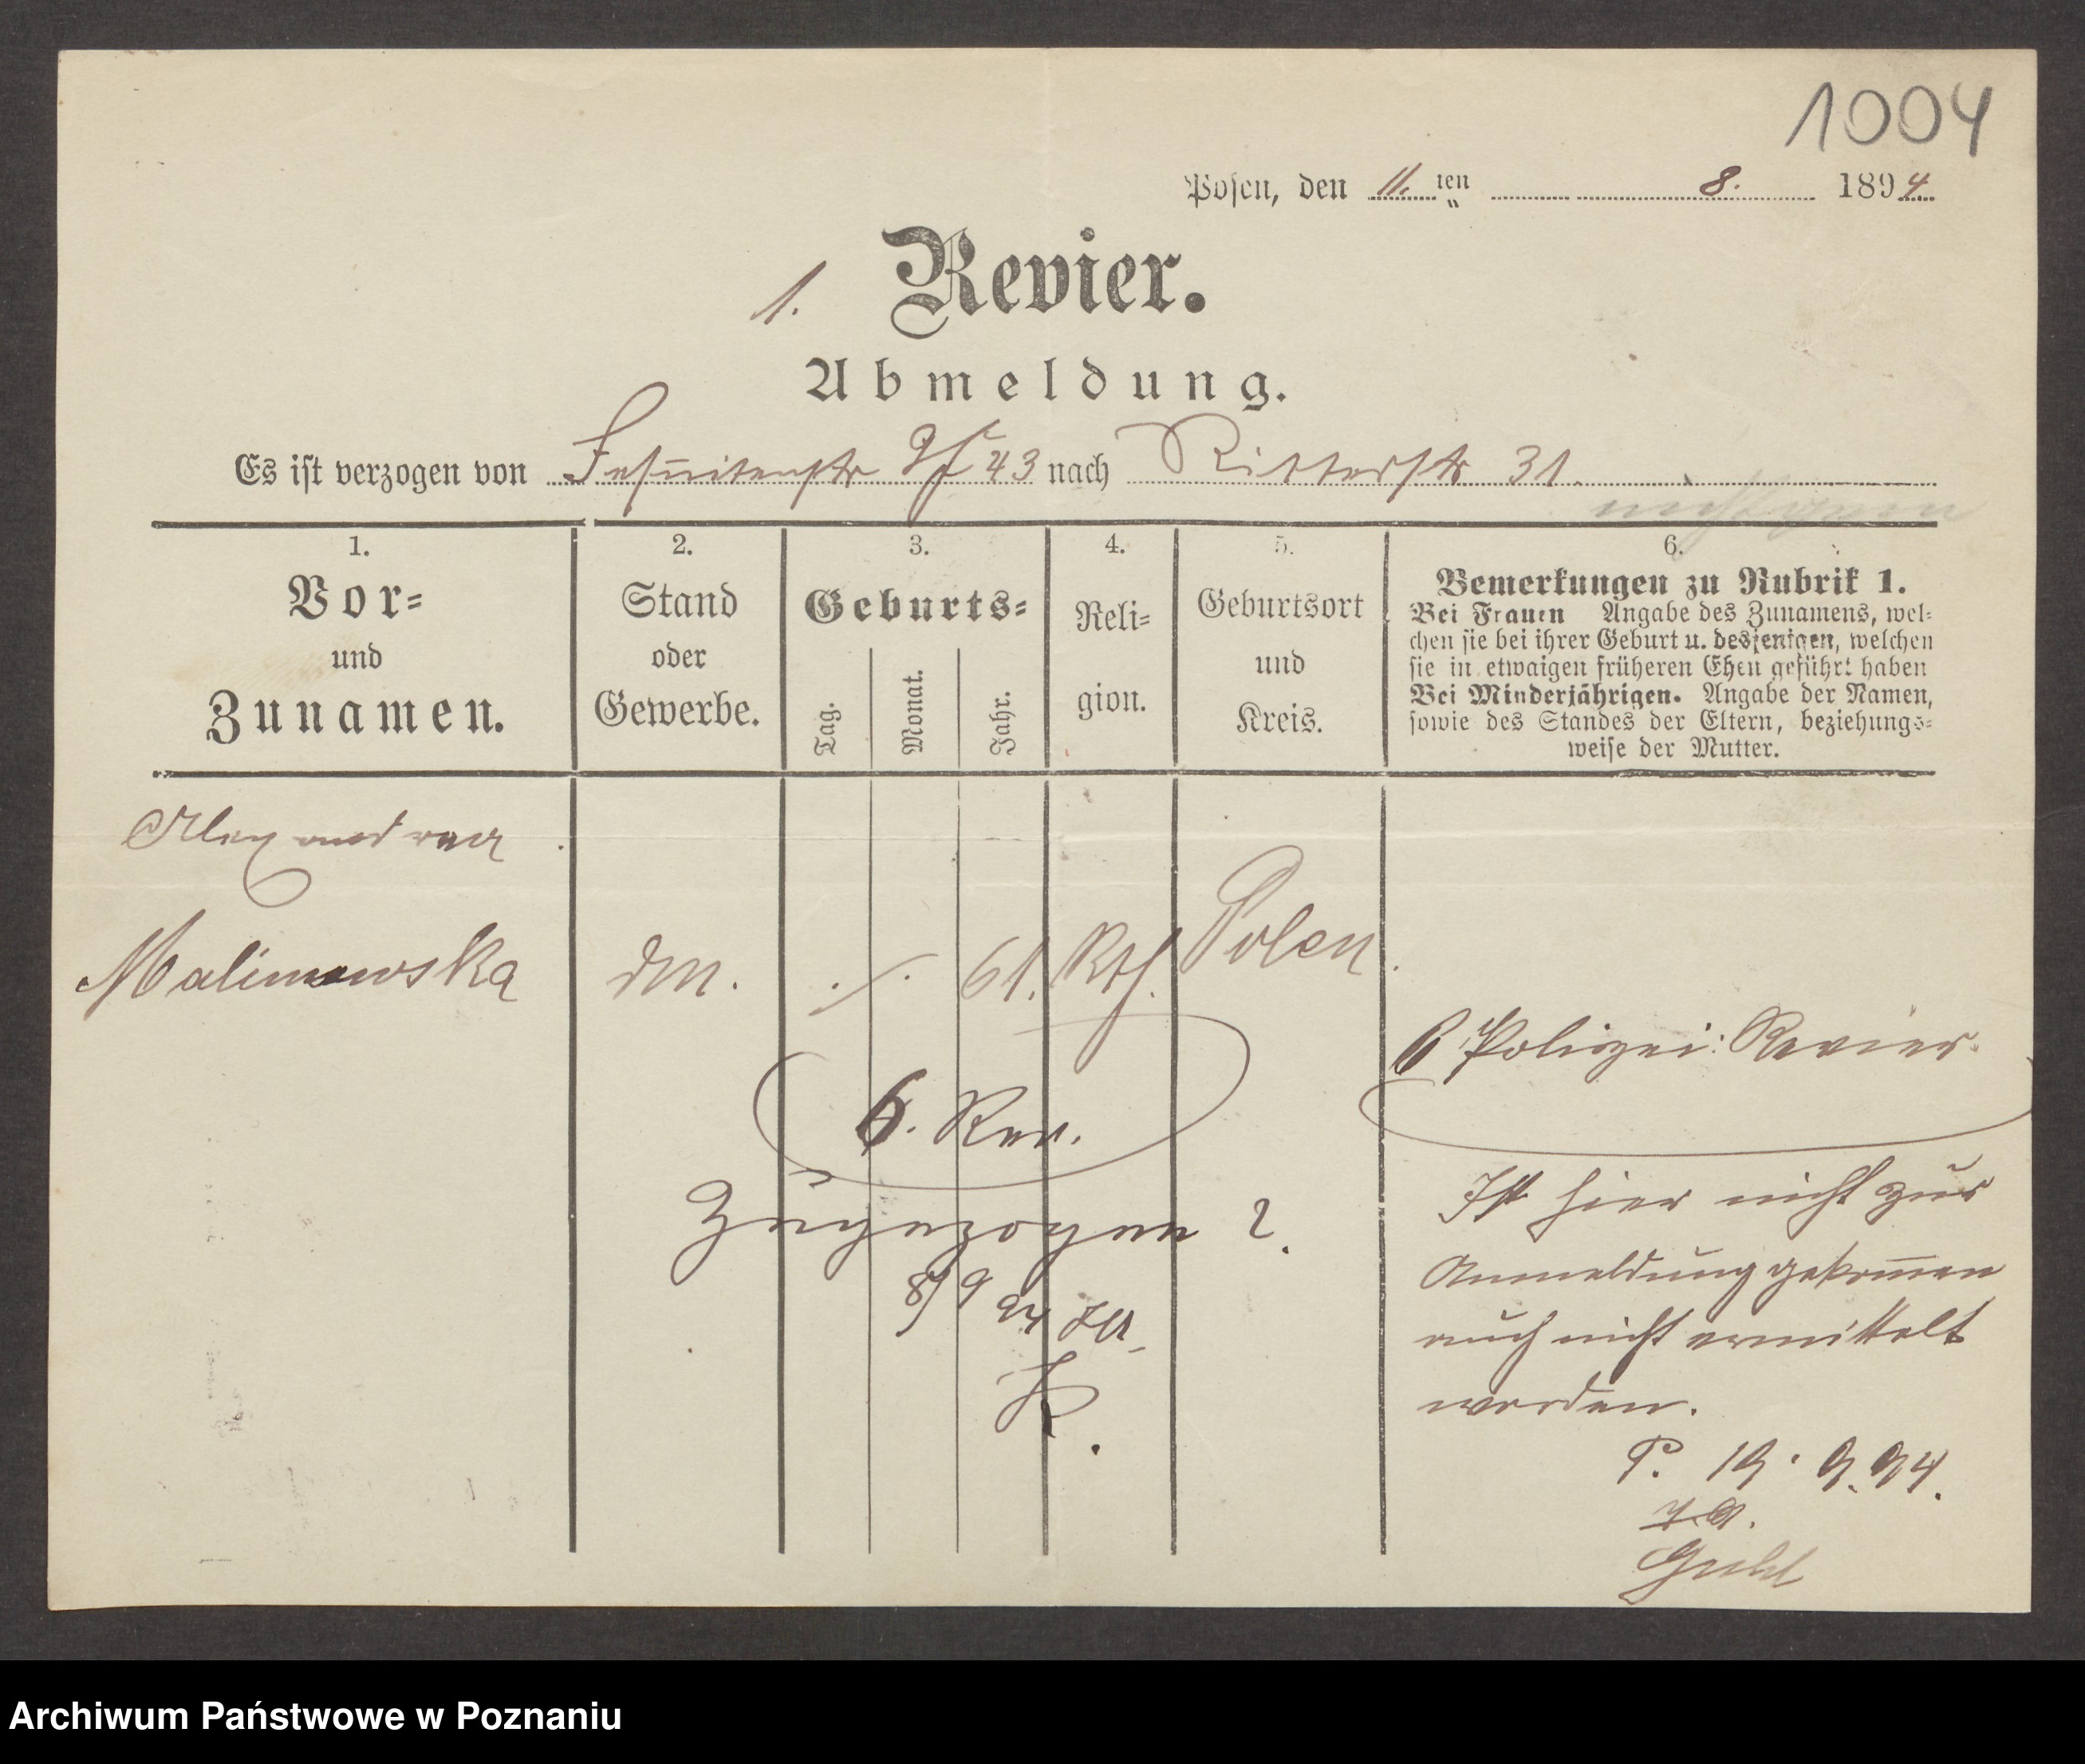 1004
Posen, den 11. ten 8. 1894.
1. Revier.
Abmeldung.
Es ist verzogen von Jesuitenstr 43 nach Ritterstr 31.
1.
Vor-
und
Zunamen.
2.
Stand
oder
Gewerbe.
3.
Geburts-
Tag.
Monat.
Jahr.
4.
Reli-
gion.
5.
Geburtsort
und
Kreis.
6.
Bemerkungen zu Rubrik 1.
Bei Frauen Angabe des Zunamens, wel-
chen sie bei ihrer Geburt u. desjenigen, welchen
sie in etwaigen früheren Ehen geführt haben
Bei Minderjährigen. Angabe der Namen,
sowie des Standes der Eltern, beziehungs-
weise der Mutter.
Alexandra
Malinowska dM. ./. 61. Kth. Polen
6. Rev.
Zugezogen ?
8/9 94
K.
6 Polizei: Revier.
Ist hier nicht zur
Anmeldung gekom̄en
auch nicht ermittelt
worden.
P. 19. 9. 94.
Archiwum Państwowe w Poznaniu